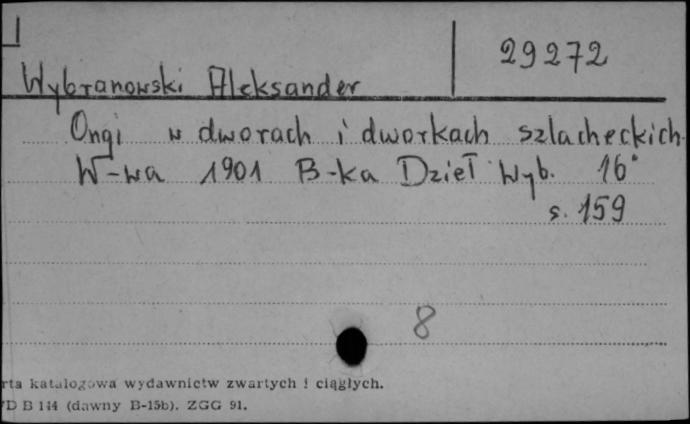 29272
Wybranowski Aleksander
Ongi w dworach i dworkach szlacheckich
W-wa 1901 B-ka Dzieł Wyb. 16°
s. 159
8
rta katalogowa wydawnictw zwartych i ciągłych.
D B 144 (dawny B-15b). ZGG 91.